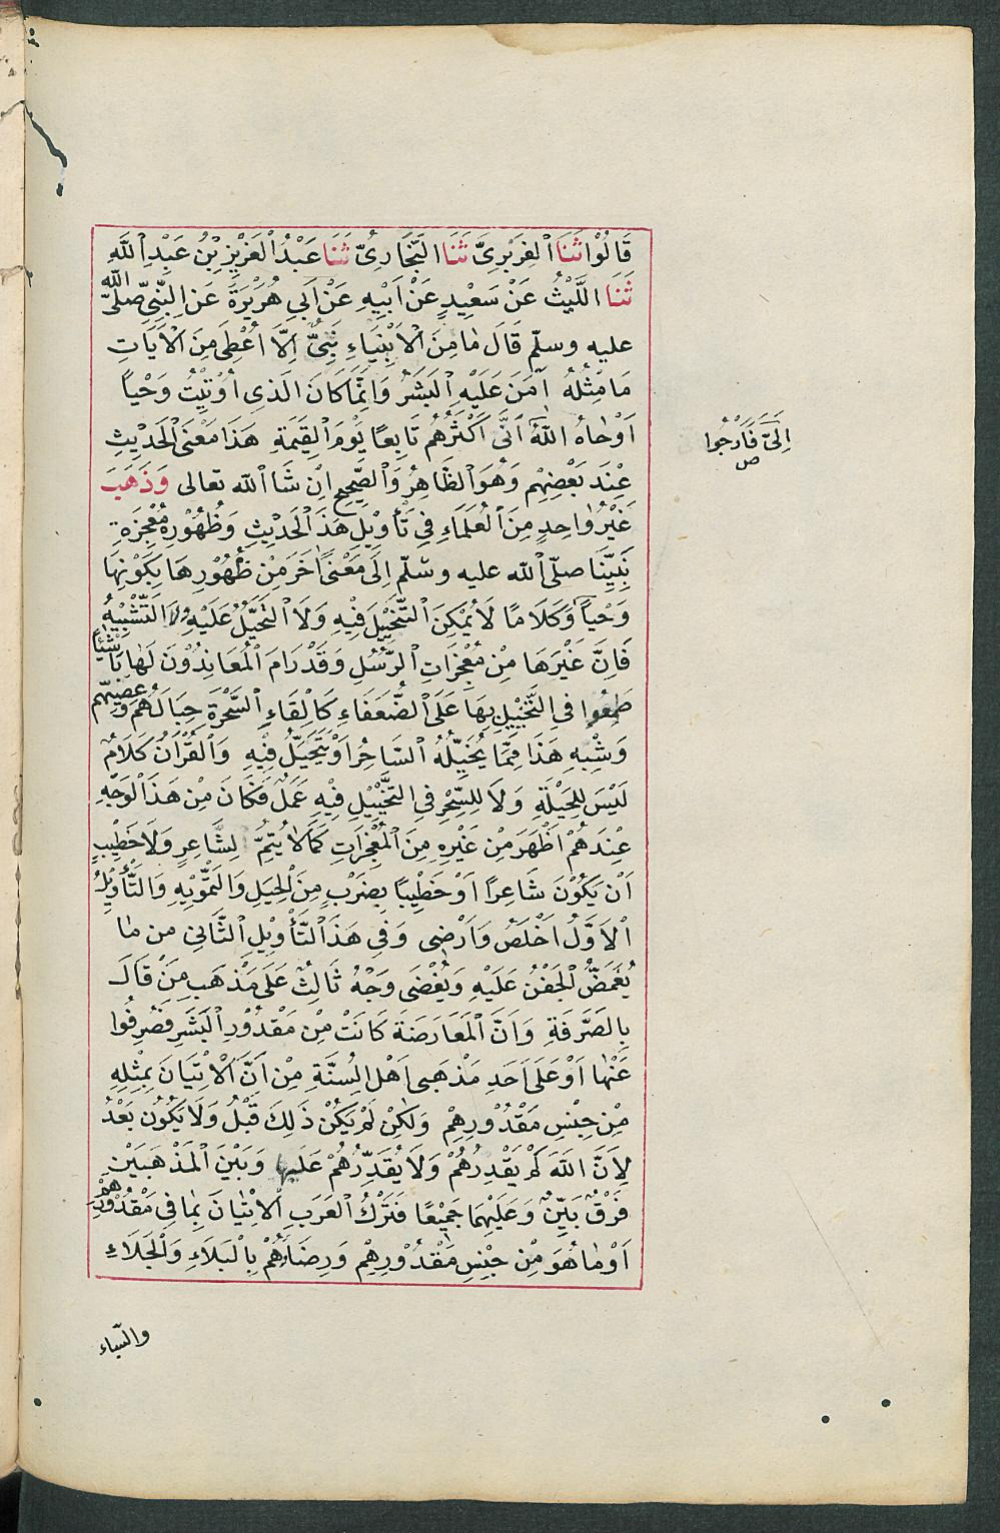 قَالُوْا ثَنَا ٱلْفِرَبْرِىُّ ثَنَا الْبُخَارِىُّ ثَنَا عَبْدُ ٱلْعَزِيْزِ بْنُ عَبْدِ ٱللَّهِ
ثَنَا اللَّيْثُ عَنْ سَعِيْدٍ عَنْ اَبِيْهِ عَنْ اَبِي هُرَيْرَةَ عَنِ النَّبِيِّ صَلَّى الله
عليه وسلّم قَالَ مَا مِنَ الْاَنْبِيَاءِ نَبِيٌّ اِلَّا اُعْطِىَ مِنَ الْاٰيَاتِ
مَا مِثْلُهُ اٰمَنَ عَلَيْهِ ٱلْبَشَرُ وَاِنَّمَا كَانَ الَّذِى اُوْتِيْتُ وَحْيًا
اَوْحَاهُ اللّٰهُ اَنِّى اَكْثَرُهُمْ تَابِعًا يَوْمَ الْقِيٰمَةِ هَذَا مَعْنَى الْحَدِيْثِ
اِلَىَّ فَاَرْجُوا
ص
عِنْدَ بَعْضِهِمْ وَهُوَ ٱلظَّاهِرُ وَٱلصَّحِيْحُ اِنْ شَاٱلله تعالى وَذَهَبَ
غَيْرُ وَاحِدٍ مِنَ ٱلْعُلَمَاءِ فِي تَأْوِيْلِ هَذَا الْحَدِيْثِ وَظُهُوْرِ مُعْجِزَةِ
نَبِيِّنَا صلّى ٱلله عليه وسّلم اِلَى مَعْنًى اٰخَرَ مِنْ ظُهُوْرِهَا بِكَوْنِهَا
وَحْيًا وَكَلَامًا لَا يُمْكِنُ ٱلتَّخْيِيْلُ فِيْهِ وَلَا التَّحَيُّلُ عَلَيْهِ وَلَا التَّشْبِيْهُ
فَاِنَّ غَيْرَهَا مِنْ مُعْجِزَاتِ ٱلرُّسُلِ وَقَدْ رَامَ الْمُعَانِدُوْنَ لَهَا بِاَشْيَاءَ
طَمِعُوا فِى التَّخْيِيْلِ بِهَا عَلَى ٱلضُّعَفَاءِ كَاِلْقَاءِ ٱلسَّحَرَةِ حِبَالَهُمْ وَعِصِيَّهُمْ
وَشِبْهِ هَذَا مِمَّا يُخَيِّلُهُ ٱلسَّاحِرُ اَوْ يَتَحَيَّلُ فِيْهِ وَٱلْقُرْاٰنُ كَلَامٌ
لَيْسَ لِلْحِيْلَةِ وَلَا لِلسِّحْرِ فِى التَّخْيِيْلِ فِيْهِ عَمَلٌ فَكَانَ مِنْ هَذَا لْوَجْهِ
عِنْدَهُمْ اَظْهَرَ مِنْ غَيْرِهِ مِنَ ٱلْمُعْجِزَاتِ كَمَا لَا يُتِمُّ لِشَاعِرٍ وَلَا خَطِيْبٍ
اَنْ يَكُوْنَ شَاعِرًا اَوْ خَطِيْبًا بِضَرْبٍ مِنَ الْحِيَلِ وَالتَّمْوِيْهِ وَالتَّأْوِيْلُ
ٱلْاَوَّلُ اَخْلَصُ وَاَرْضٰى وَفِى هَذَا ٱلتَّأْوِيْلِ ٱلثَّانِىْ مِنْ مَا
يُغَمَّضُ الْجَفْنُ عَلَيْهِ وَيُغْضَى وَجْهٌ ثَالِثٌ عَلَى مَذْهَبِ مَنْ قَالَ
بِالصَّرْفَةِ وَاَنَّ ٱلْمُعَارَضَةَ كَانَتْ مِنْ مَقْدُوْرِ ٱلْبَشَرِ فَصُرِفُوا
عَنْهَا اَوْ عَلَى اَحَدِ مَذْهَبَى اَهْلِ السُّنَّةِ مِنْ اَنَّ ٱلْاِتْيَانَ بِمِثْلِهِ
مِنْ جِنْسِ مَقْدُوْرِهِمْ وَلٰكِنْ لَمْ يَكُنْ ذَلِكَ قَبْلُ وَلَا يَكُوْنُ بَعْدُ
لِاَنَّ اللّٰهَ لَمْ يَقْدِرْهُمْ وَلَا يُقَدِّرُهُمْ عَلَيْهَا وَبَيْنَ ٱلْمَذْهَبَيْنِ
فَرْقٌ بَيِّنٌ وَعَلَيْهِمَا جَمِيْعًا فَتَرْكُ ٱلْعَرَبِ ٱلْاِتْيَانَ بِمَا فِى مَقْدُوْرِهِمْ
اَوْمَا هُوَ مِنْ جِنْسِ مَقْدُوْرِهِمْ وَرِضَاهُمْ بِالْبَلَاءِ وَٱلْجَلَاءِ
والسّباء